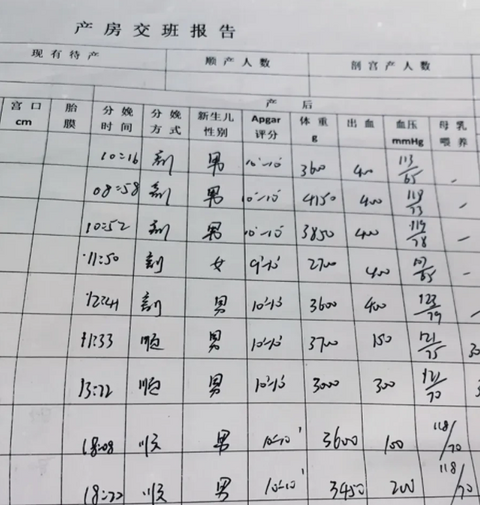 产房交班报告
现有待产 顺产人数 剖宫产人数
产后
宫口 cm 胎膜 分娩时间 分娩方式 新生儿性别 Apgar评分 体重 g 出血 血压 mmHg 母乳喂养
10:16 剖 男 10'-10' 3600 400 113/65 -
08:58 剖 男 10'-10' 4150 400 119/73 -
10:52 剖 男 10'-10' 3850 400 /78 -
11:50 剖 女 9'-10' 2700 400 /65 -
12:41 剖 男 10'-10' 3600 400 123/79 -
11:33 顺 男 10'-10' 3700 150 121/75
13:22 顺 男 10'-10' 3000 300 121/70
18:08 顺 男 10'-10' 3600 100 118/70
18:22 顺 男 10'-10' 3450 200 118/70